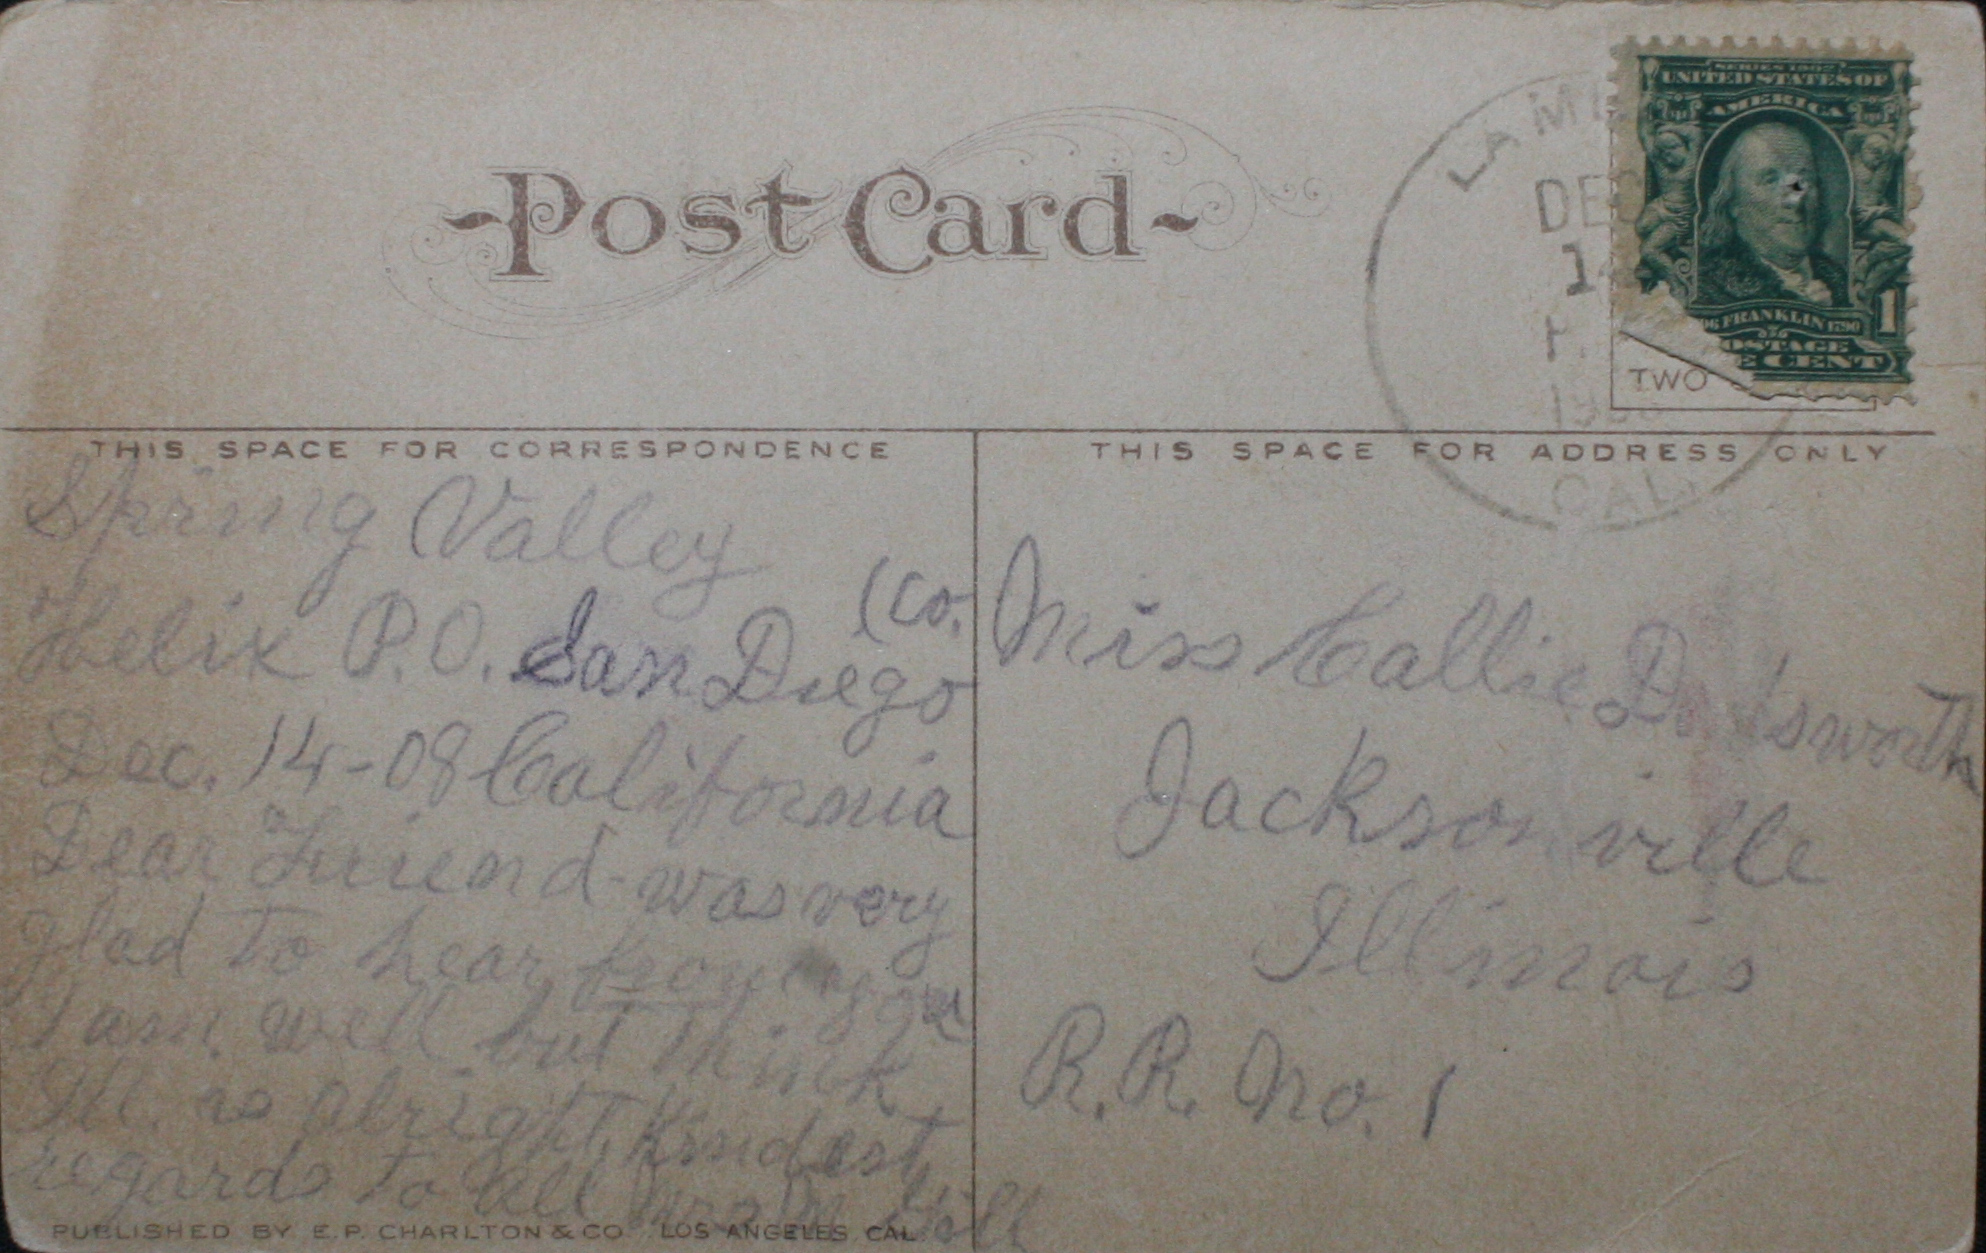 Post Card
LA M
DEC
14
CAL.
SERIES 1902
UNITED STATES OF
AMERICA
FRANKLIN 1790
POSTAGE
E CENT
1
TWO
THIS SPACE FOR CORRESPONDENCE
Spring Valley
Helix P.O. San Diego (Co.
Dec. 14-08 California
Dear Friend-was very
glad to hear from you
I am well but think
Ill. is alright. Kindest
regards to all from Will
PUBLISHED BY E. P. CHARLTON & CO. LOS ANGELES CAL.
THIS SPACE FOR ADDRESS ONLY
Miss Callie
Jacksonville
Illinois
R.R. No. 1